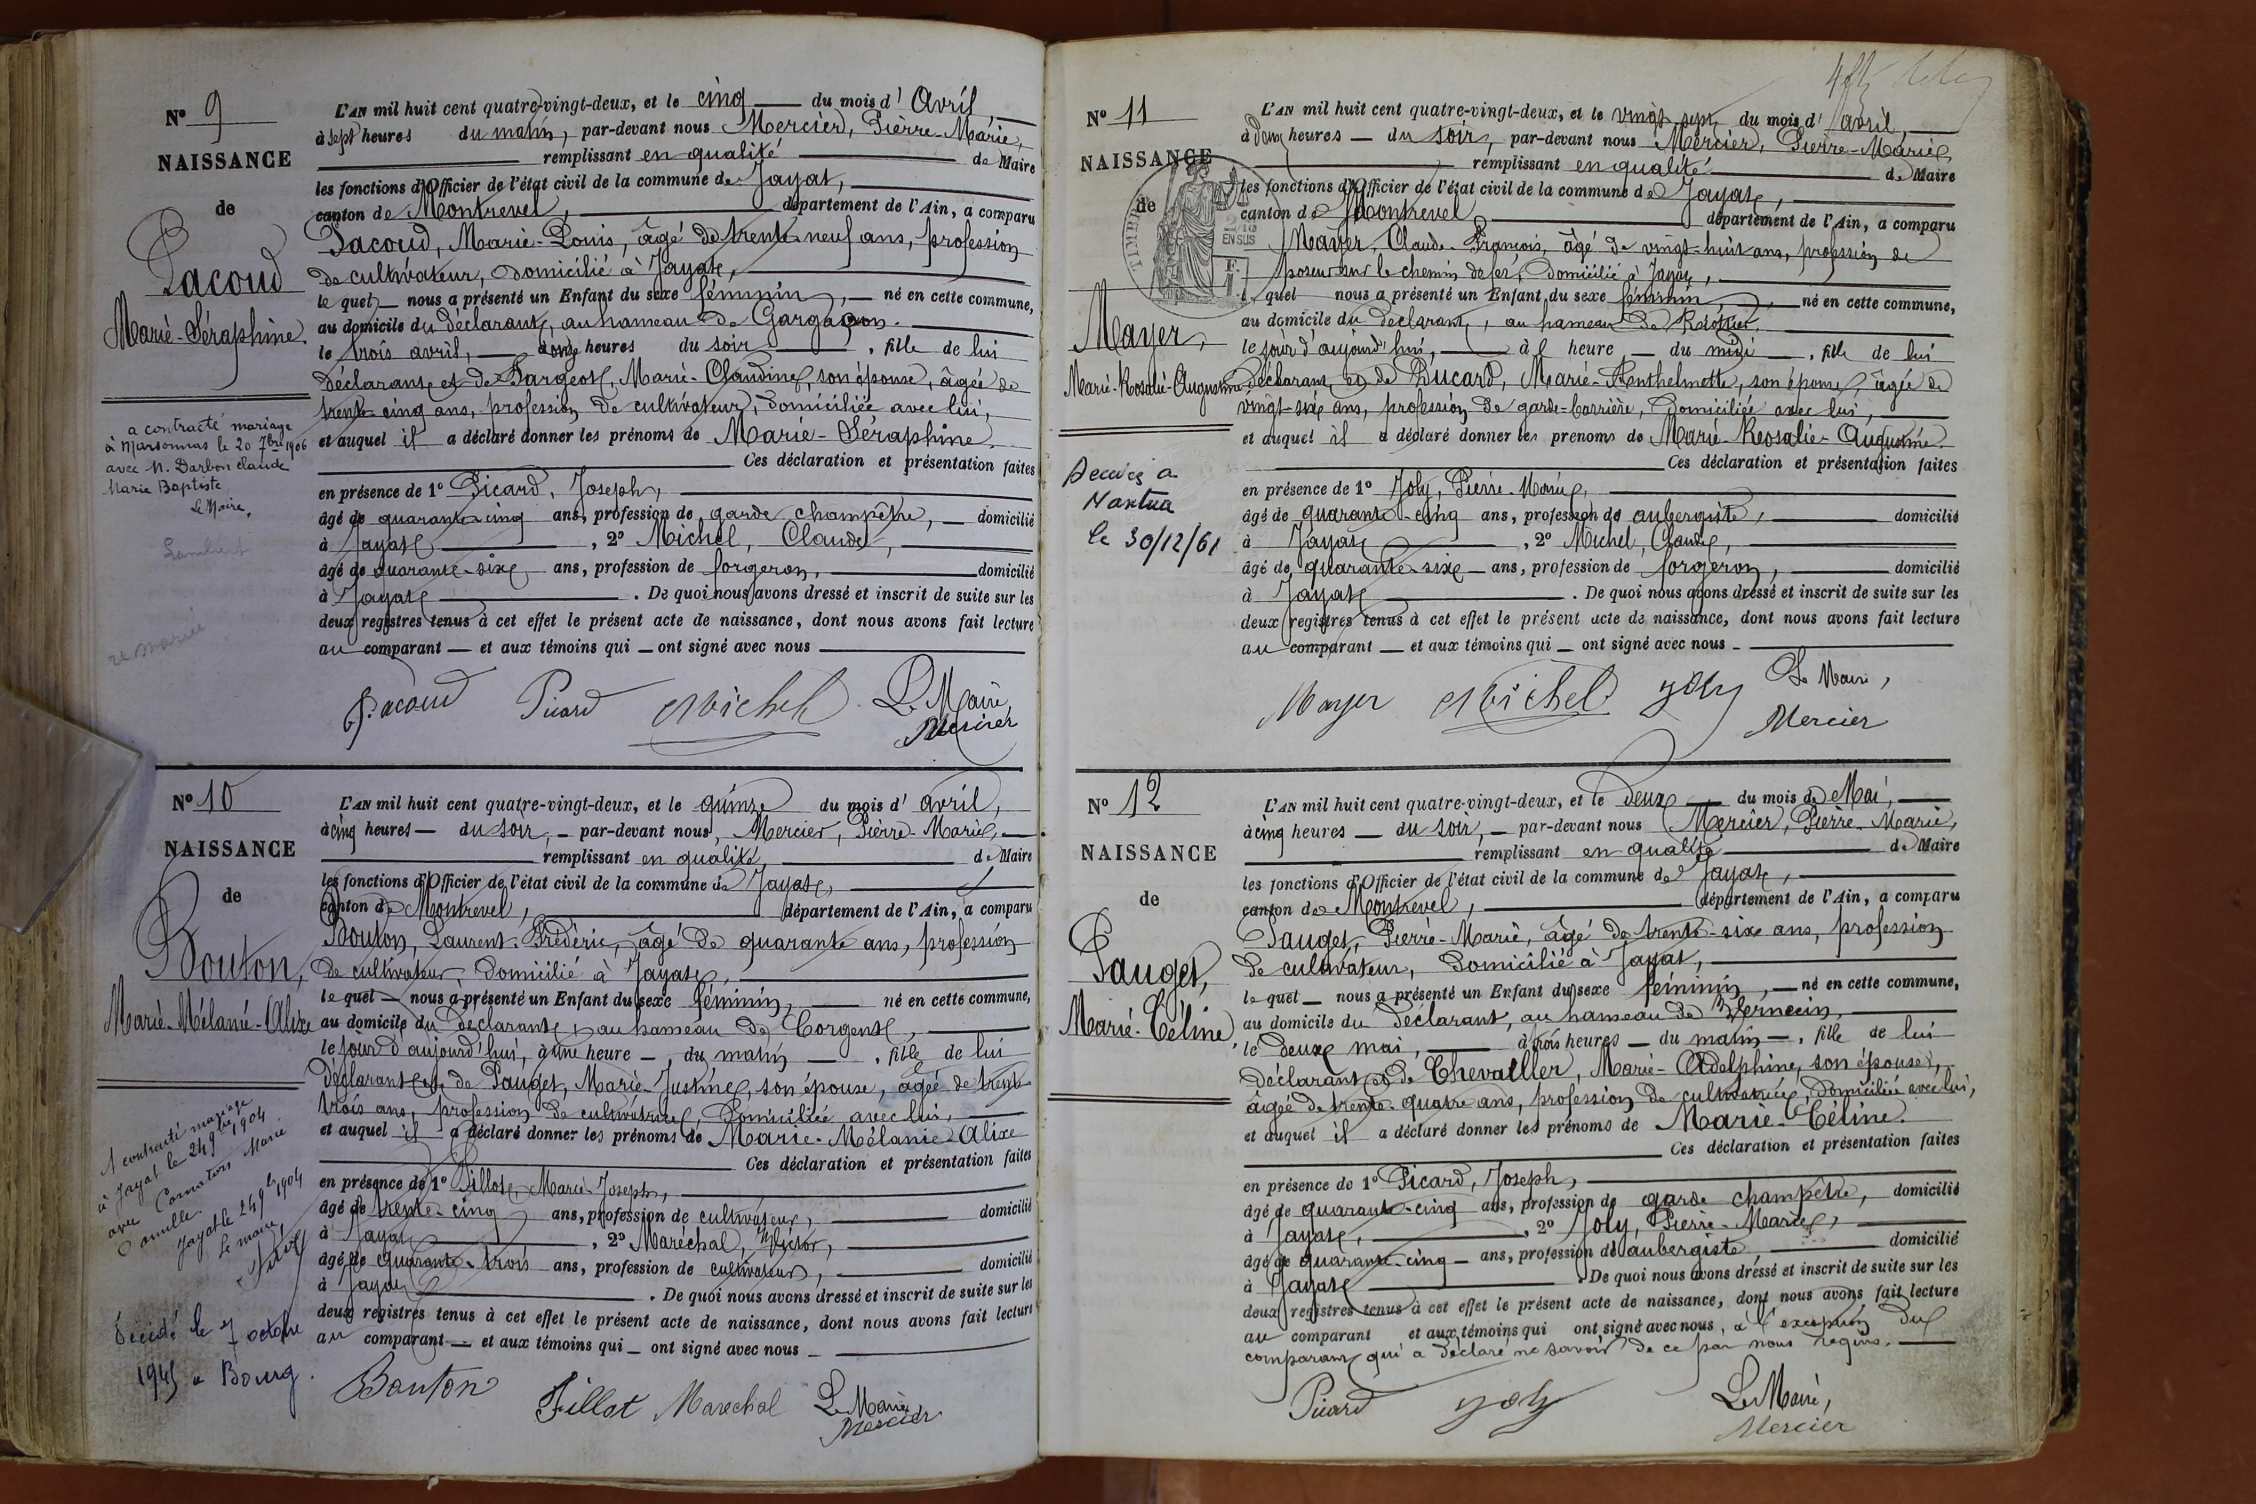 N° 9
NAISSANCE
de
Pacoud
Marie-Séraphine.
a contracté mariage
à Marsonnas le 20 7bre 1906
avec M. Darbon Claude
Marie Baptiste
Le Maire,
Lambert
L'AN mil huit cent quatre-vingt-deux, et le cinq du mois d' Avril,
à sept heures du matin, par-devant nous Mercier, Pierre-Marie,
remplissant en qualité de Maire
les fonctions d'Officier de l'état civil de la commune de Jayat,
canton de Montrevel, département de l'Ain, a comparu
Pacoud, Marie-Louis, âgé de trente-neuf ans, profession
de cultivateur, domicilié à Jayat,
le quel nous a présenté un Enfant du sexe féminin, né en cette commune,
au domicile du déclarant, au hameau de
le trois avril, à onze heures du soir, fille de lui
déclarant et de Fargeot, Marie-Claudine, son épouse, âgée de
trente-cinq ans, profession de cultivateur, domiciliée avec lui,
et auquel il a déclaré donner les prénoms de Marie-Séraphine.
Ces déclaration et présentation faites
en présence de 1° Picard, Joseph,
âgé de quarante-cinq ans, profession de garde champêtre, domicilié
à Jayat, 2° Michel, Claude,
âgé de quarante-six ans, profession de forgeron, domicilié
à Jayat. De quoi nous avons dressé et inscrit de suite sur les
deux registres tenus à cet effet le présent acte de naissance, dont nous avons fait lecture
au comparant et aux témoins qui ont signé avec nous
Pacoud Picard Michel Le Maire,
Mercier
N° 10
NAISSANCE
de
Bouton,
Marie-Mélanie-Alixe
A contracté mariage
à Jayat le 24 9bre 1904
avec Cornaton Marie
Camille
Jayat le 24 9bre 1904
Le maire,
Décédé le 7 octobre
1945 à Bourg.
L'AN mil huit cent quatre-vingt-deux, et le quinze du mois d' avril,
à cinq heures du soir, par-devant nous, Mercier, Pierre-Marie,
remplissant en qualité, de Maire
les fonctions d'Officier de l'état civil de la commune de Jayat,
canton de Montrevel, département de l'Ain, a comparu
Bouton, Laurent-Frédéric, âgé de quarante ans, profession
de cultivateur, domicilié à Jayat,
le quel nous a présenté un Enfant du sexe féminin, né en cette commune,
au domicile du déclarant, au hameau de Corgent,
le jour d'aujourd'hui, à une heure du matin, fille de lui
déclarant et de Pauget, Marie-Justine, son épouse, âgée de trente
trois ans, profession de cultivatrice, domiciliée avec lui,
et auquel il a déclaré donner les prénoms de Marie-Mélanie-Alixe
Ces déclaration et présentation faites
en présence de 1° Fillot, Marie-Joseph,
âgé de trente-cinq ans, profession de cultivateur, domicilié
à Jayat, 2° Maréchal, Victor,
âgé de quarante-trois ans, profession de cultivateur, domicilié
à Jayat. De quoi nous avons dressé et inscrit de suite sur les
deux registres tenus à cet effet le présent acte de naissance, dont nous avons fait lecture
au comparant et aux témoins qui ont signé avec nous
Bouton Fillot Maréchal Le Maire
Mercier
N° 11
NAISSANCE
de
TIMBRE
2/10
EN SUS
Mayer,
Marie-Rosalie-Augustine
Décédée à
Nantua
le 30/12/61
L'AN mil huit cent quatre-vingt-deux, et le vingt-sept du mois d' avril,
à deux heures du soir, par-devant nous Mercier, Pierre-Marie,
remplissant en qualité de Maire
les fonctions d'Officier de l'état civil de la commune de Jayat,
canton de Montrevel département de l'Ain, a comparu
Mayer, Claude-François, âgé de vingt-huit ans, profession de
poseur sur le chemin de fer, domicilié à Jayat,
le quel nous a présenté un Enfant du sexe féminin, né en cette commune,
au domicile du déclarant, au hameau de
le jour d'aujourd'hui, à l heure du midi, fille de lui
déclarant, et de Bucard, Marie-Anthelmette, son épouse, âgée de
vingt-six ans, profession de garde-barrière, domiciliée avec lui,
et auquel il a déclaré donner les prénoms de Marie-Rosalie-Augustine.
Ces déclaration et présentation faites
en présence de 1° Joly, Pierre-Marie,
âgé de quarante-cinq ans, profession de aubergiste, domicilié
à Jayat, 2° Michel, Claude,
âgé de quarante-six ans, profession de forgeron, domicilié
à Jayat. De quoi nous avons dressé et inscrit de suite sur les
deux registres tenus à cet effet le présent acte de naissance, dont nous avons fait lecture
au comparant et aux témoins qui ont signé avec nous
Mayer Michel Joly Le Maire,
Mercier
N° 12
NAISSANCE
de
Pauget,
Marie-Céline.
L'AN mil huit cent quatre-vingt-deux, et le deux du mois de Mai,
à cinq heures du soir, par-devant nous Mercier, Pierre-Marie,
remplissant en qualité de Maire
les fonctions d'Officier de l'état civil de la commune de Jayat,
canton de Montrevel, département de l'Ain, a comparu
Pauget, Pierre-Marie, âgé de trente-six ans, profession
de cultivateur, domicilié à Jayat,
le quel nous a présenté un Enfant du sexe féminin, né en cette commune,
au domicile du déclarant, au hameau de
le deux mai, à trois heures du matin, fille de lui
déclarant et de Chevallier, Marie-Adelphine, son épouse,
âgée de trente-quatre ans, profession de cultivatrice, domiciliée avec lui,
et auquel il a déclaré donner les prénoms de Marie-Céline.
Ces déclaration et présentation faites
en présence de 1° Picard, Joseph,
âgé de quarante-cinq ans, profession de garde champêtre, domicilié
à Jayat, 2° Joly, Pierre-Marie,
âgé de quarante-cinq ans, profession de aubergiste, domicilié
à Jayat. De quoi nous avons dressé et inscrit de suite sur les
deux registres tenus à cet effet le présent acte de naissance, dont nous avons fait lecture
au comparant et aux témoins qui ont signé avec nous, à l'exception du
comparant qui a déclaré ne savoir de ce par nous requis.
Picard Joly Le Maire,
Mercier